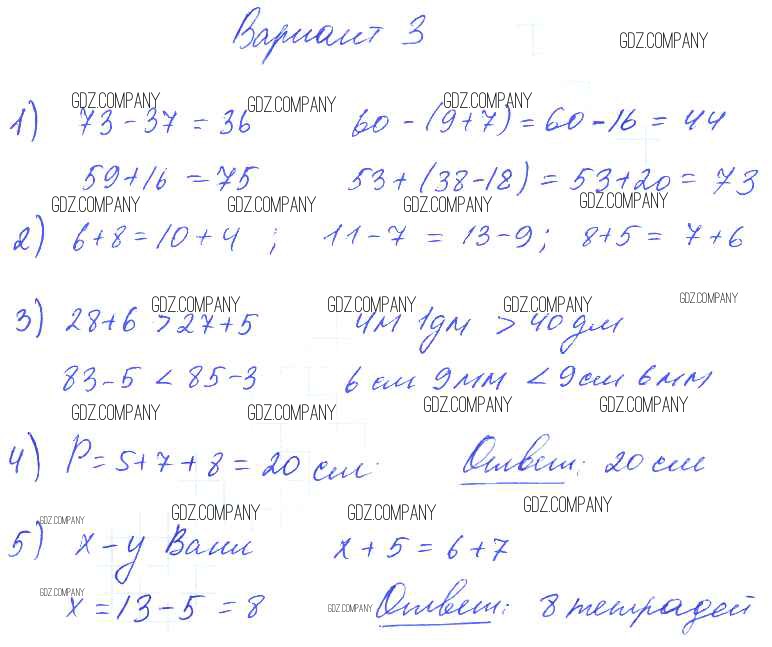 Вариант 3
GDZ.COMPANY
GDZ.COMPANY GDZ.COMPANY GDZ.COMPANY
1) 73-37 = 36 60 - (9+7) = 60-16 = 44
59+16 = 75 53 + (38-18) = 53+20 = 73
GDZ.COMPANY GDZ.COMPANY GDZ.COMPANY GDZ.COMPANY
2) 6+8=10+4 ; 11-7 = 13-9; 8+5 = 7+6
GDZ.COMPANY GDZ.COMPANY GDZ.COMPANY GDZ.COMPANY
3) 28+6 > 27+5 4м 1дм > 40 дм
83-5 < 85-3 6 см 9 мм < 9 см 6 мм
GDZ.COMPANY GDZ.COMPANY GDZ.COMPANY GDZ.COMPANY
4) P = 5+7+8 = 20 см. Ответ: 20 см
GDZ.COMPANY GDZ.COMPANY GDZ.COMPANY GDZ.COMPANY
5) x - у Вани x + 5 = 6 + 7
GDZ.COMPANY GDZ.COMPANY
x = 13 - 5 = 8 Ответ: 8 тетрадей